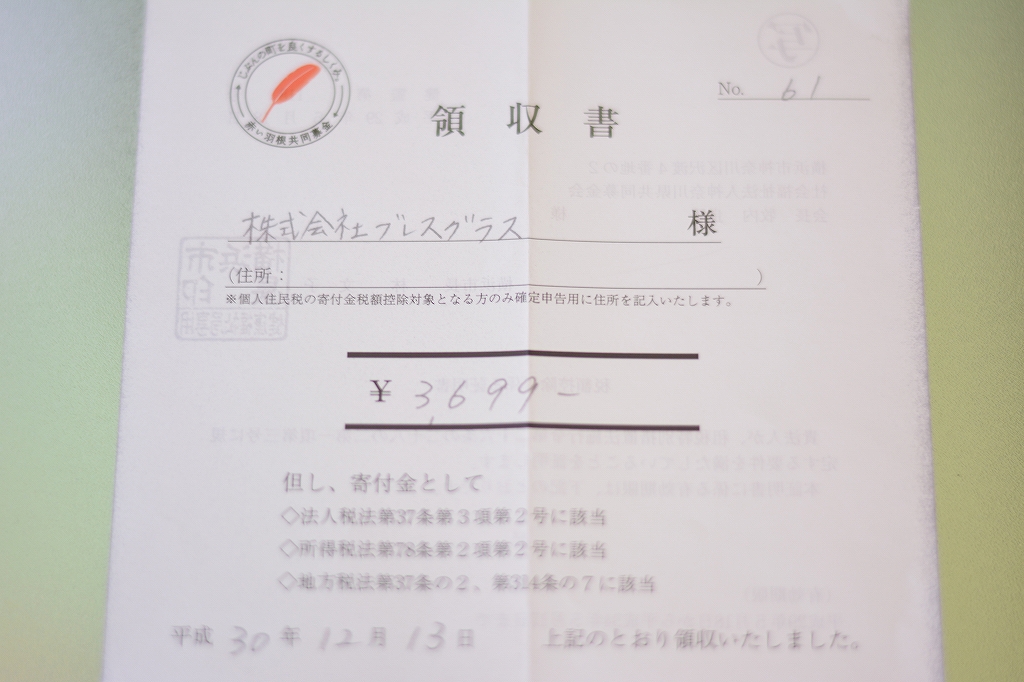 じぶんの町を良くするしくみ。
赤い羽根共同募金
No. 61
領収書
株式会社ブレスグラス 様
(住所： )
※個人住民税の寄付金税額控除対象となる方のみ確定申告用に住所を記入いたします。
¥ 3,699-
但し、寄付金として
◇法人税法第37条第3項第2号に該当
◇所得税法第78条第2項第2号に該当
◇地方税法第37条の2、第314条の7に該当
平成 30 年 12 月 13 日 上記のとおり領収いたしました。